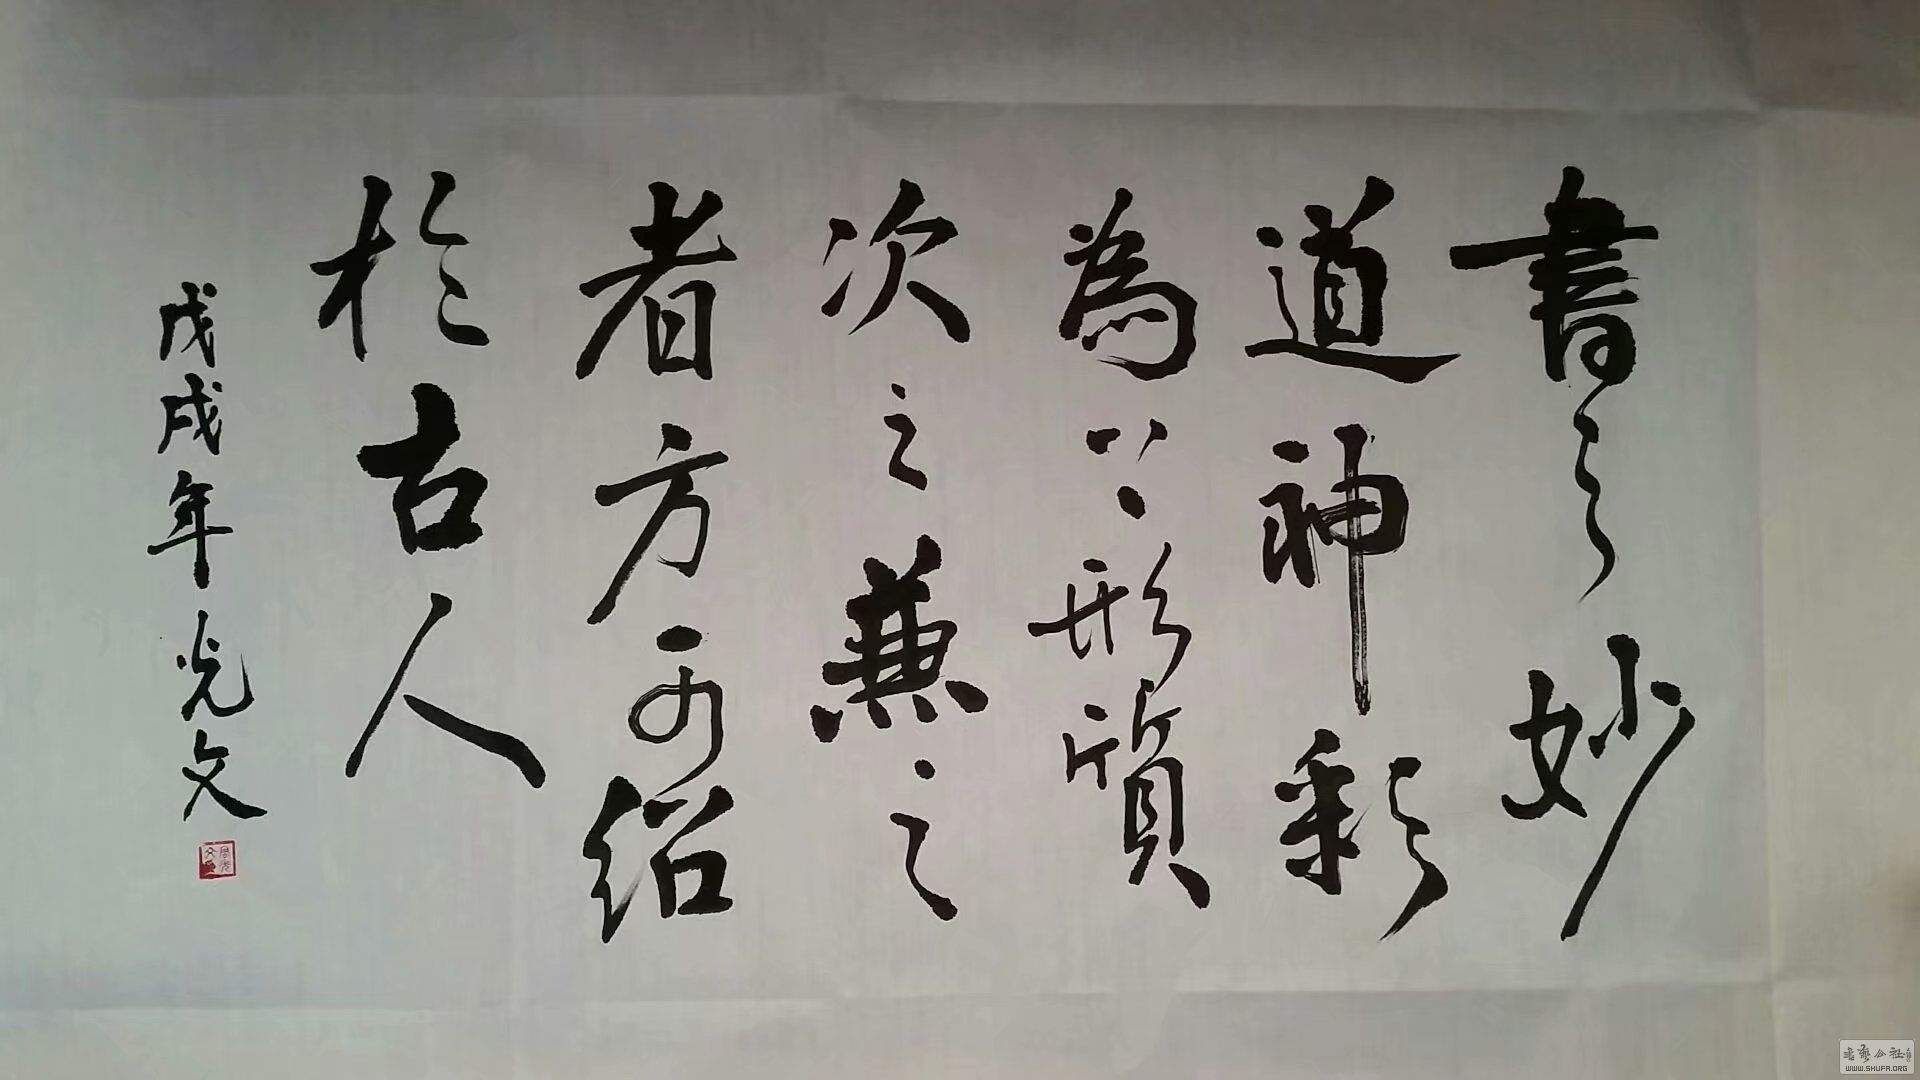 書之妙
道神彩
為上形質
次之兼之
者方可紹
於古人
戊戌年光文
WWW.SHUFA.ORG